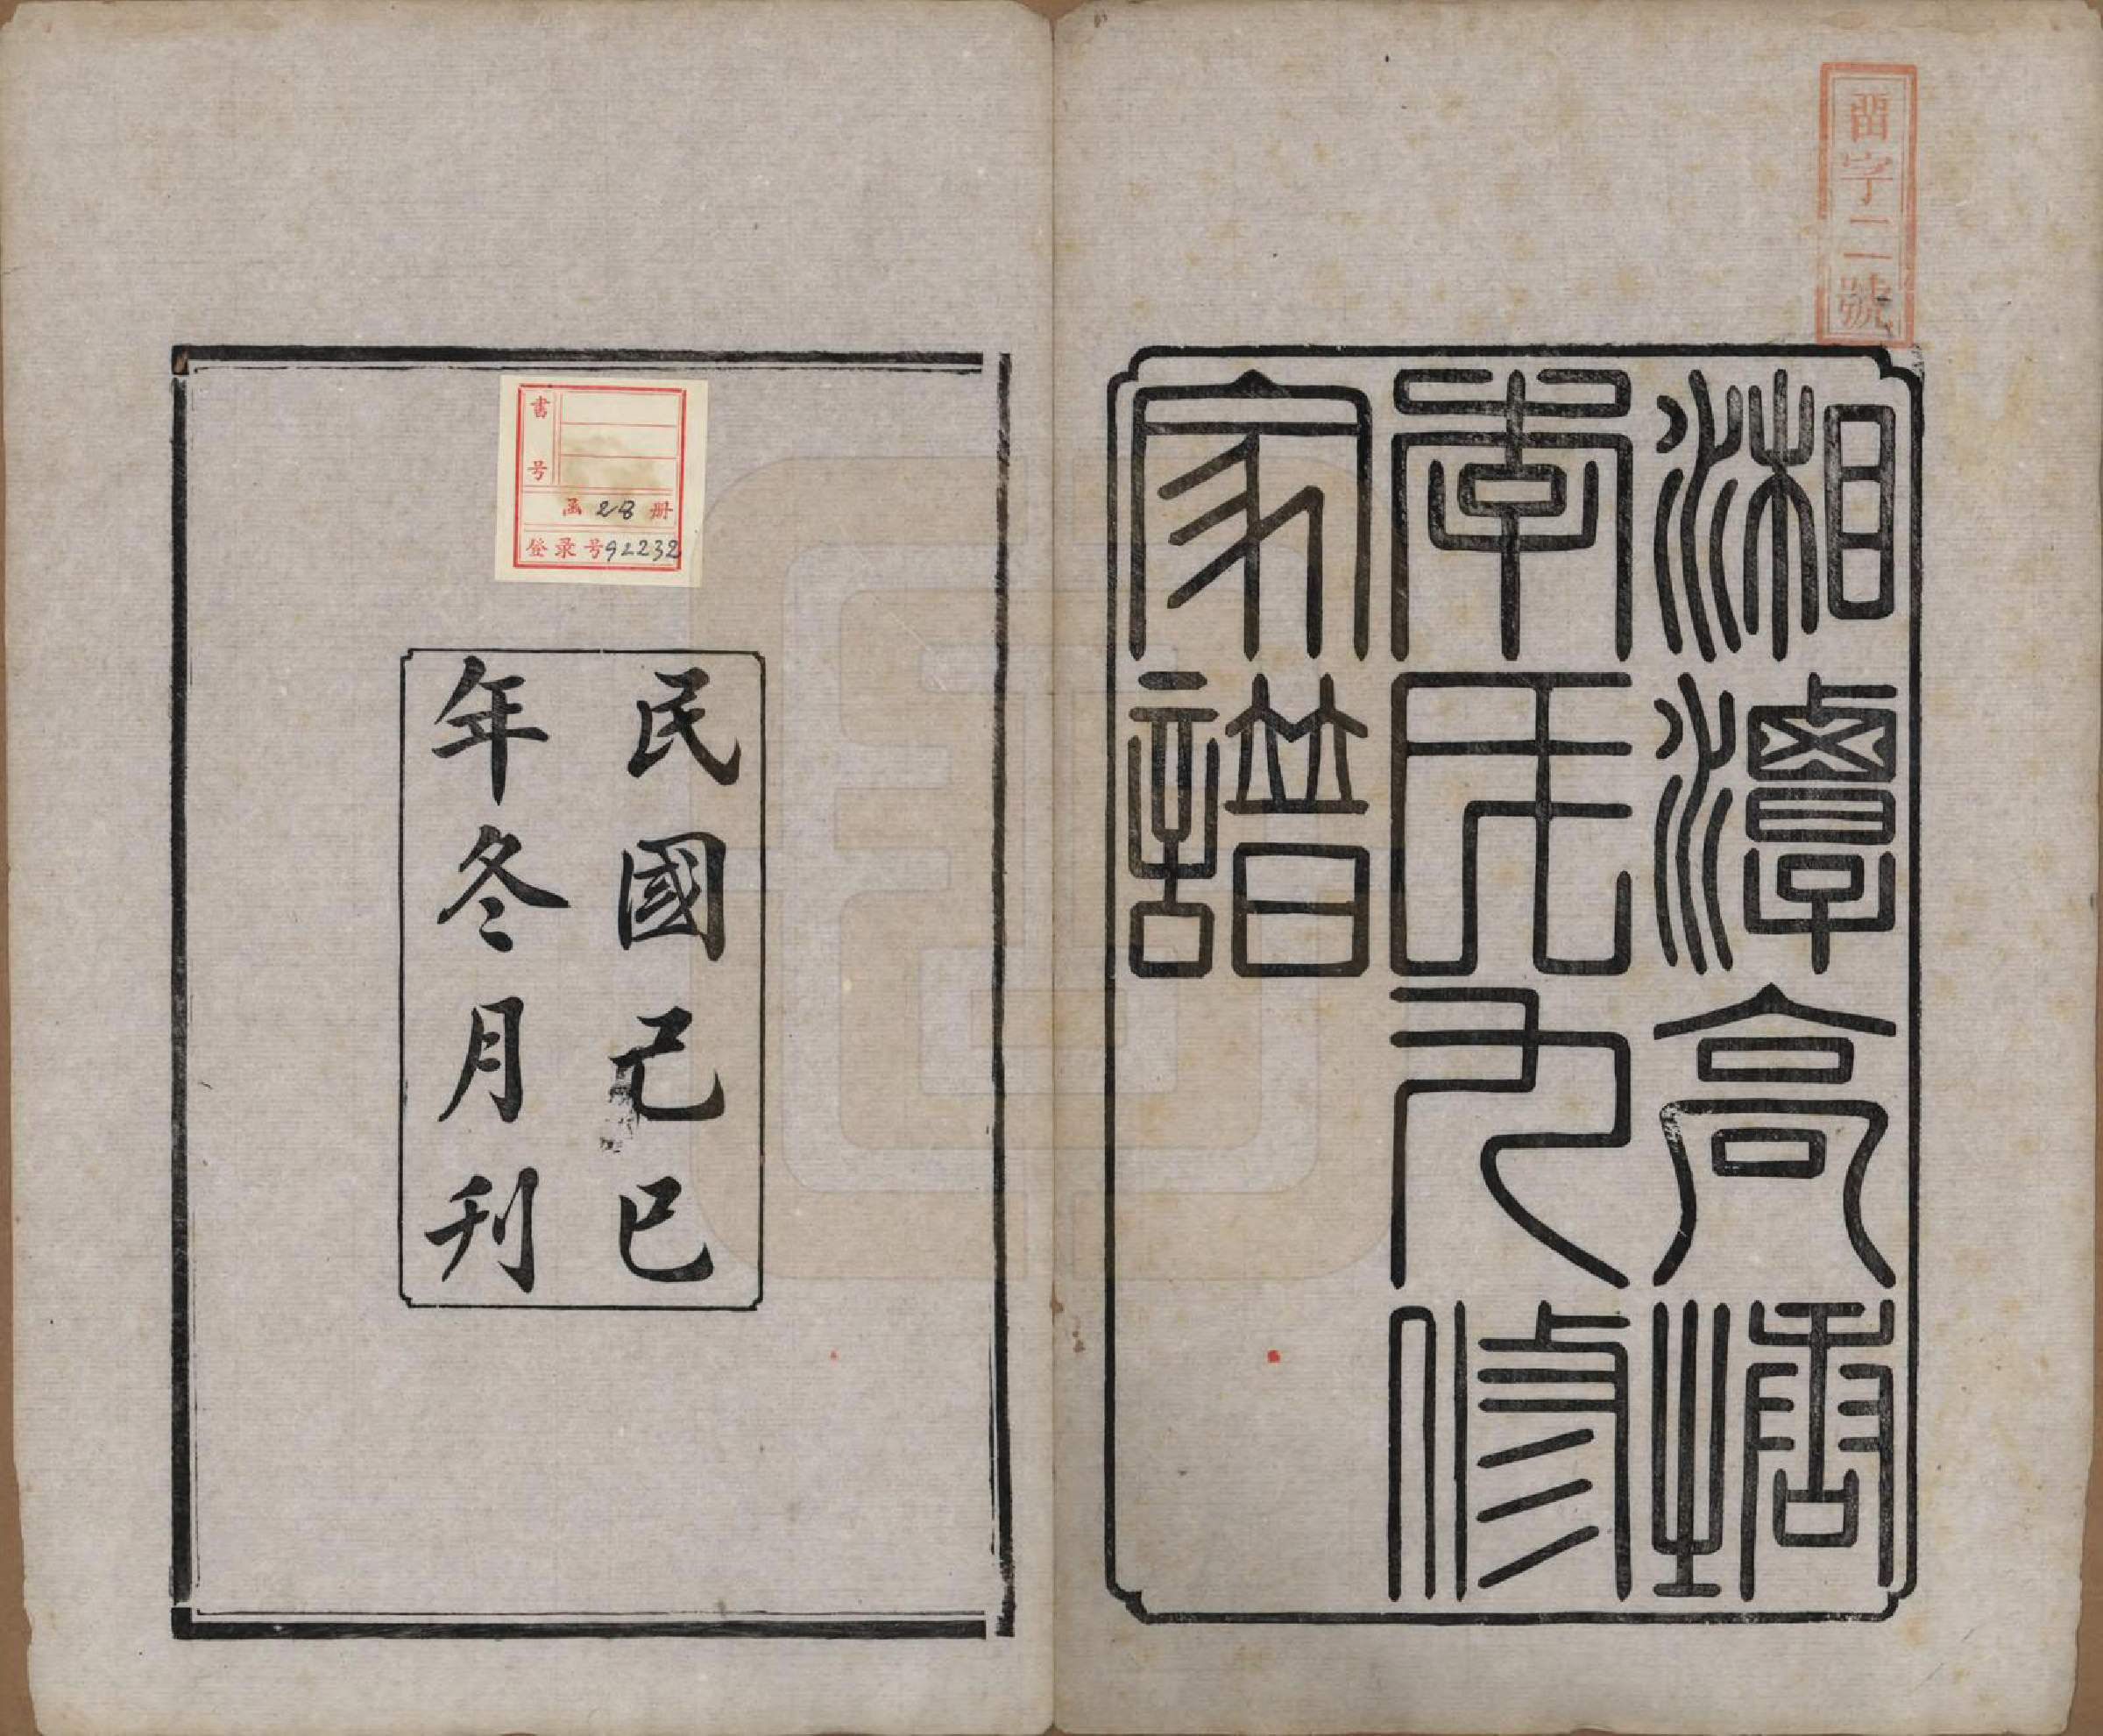 畱字二號
湘潭高塘
李氏九修
家譜
民國己巳
年冬月刊
書号
函 28 册
登录号 92232